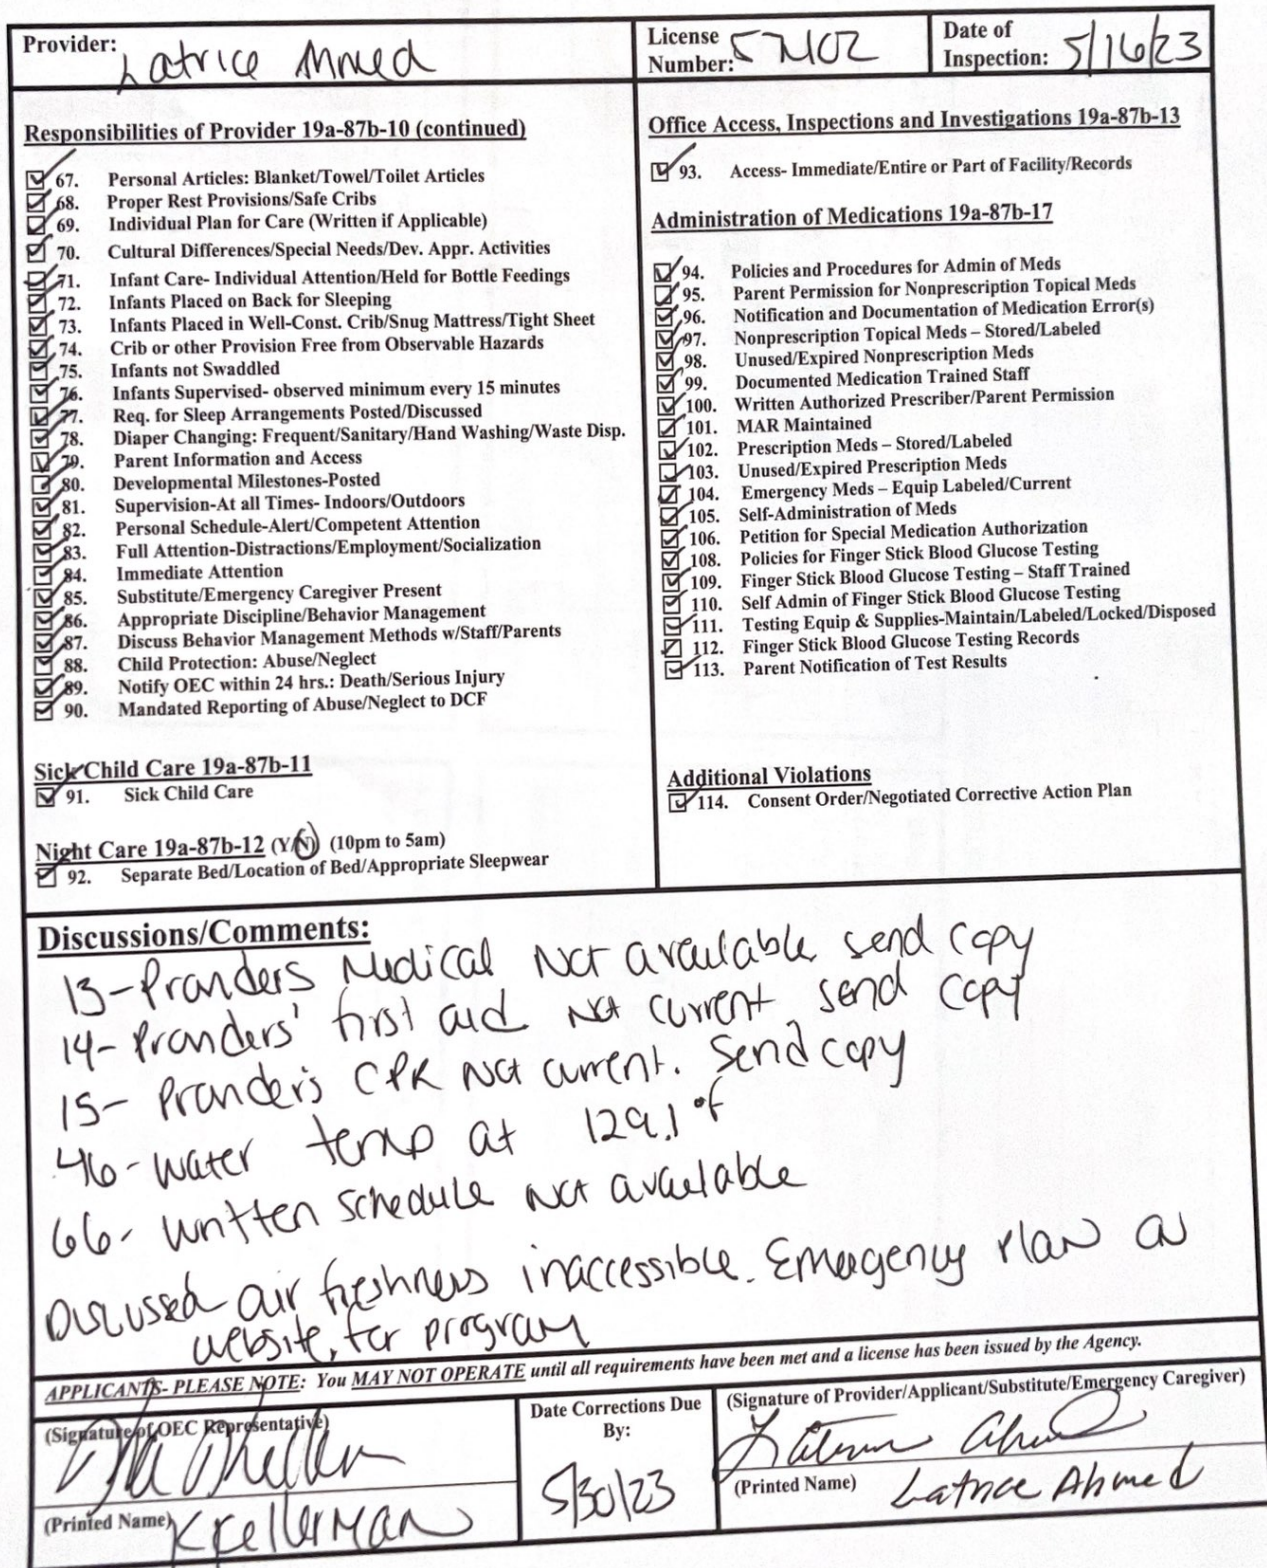 Provider: Latrice Ahmed
License Number: 57102
Date of Inspection: 5/16/23
Responsibilities of Provider 19a-87b-10 (continued)
67. Personal Articles: Blanket/Towel/Toilet Articles
68. Proper Rest Provisions/Safe Cribs
69. Individual Plan for Care (Written if Applicable)
70. Cultural Differences/Special Needs/Dev. Appr. Activities
71. Infant Care- Individual Attention/Held for Bottle Feedings
72. Infants Placed on Back for Sleeping
73. Infants Placed in Well-Const. Crib/Snug Mattress/Tight Sheet
74. Crib or other Provision Free from Observable Hazards
75. Infants not Swaddled
76. Infants Supervised- observed minimum every 15 minutes
77. Req. for Sleep Arrangements Posted/Discussed
78. Diaper Changing: Frequent/Sanitary/Hand Washing/Waste Disp.
79. Parent Information and Access
80. Developmental Milestones-Posted
81. Supervision-At all Times- Indoors/Outdoors
82. Personal Schedule-Alert/Competent Attention
83. Full Attention-Distractions/Employment/Socialization
84. Immediate Attention
85. Substitute/Emergency Caregiver Present
86. Appropriate Discipline/Behavior Management
87. Discuss Behavior Management Methods w/Staff/Parents
88. Child Protection: Abuse/Neglect
89. Notify OEC within 24 hrs.: Death/Serious Injury
90. Mandated Reporting of Abuse/Neglect to DCF
Sick Child Care 19a-87b-11
91. Sick Child Care
Night Care 19a-87b-12 (Y/N) (10pm to 5am)
92. Separate Bed/Location of Bed/Appropriate Sleepwear
Office Access, Inspections and Investigations 19a-87b-13
93. Access- Immediate/Entire or Part of Facility/Records
Administration of Medications 19a-87b-17
94. Policies and Procedures for Admin of Meds
95. Parent Permission for Nonprescription Topical Meds
96. Notification and Documentation of Medication Error(s)
97. Nonprescription Topical Meds – Stored/Labeled
98. Unused/Expired Nonprescription Meds
99. Documented Medication Trained Staff
100. Written Authorized Prescriber/Parent Permission
101. MAR Maintained
102. Prescription Meds – Stored/Labeled
103. Unused/Expired Prescription Meds
104. Emergency Meds – Equip Labeled/Current
105. Self-Administration of Meds
106. Petition for Special Medication Authorization
108. Policies for Finger Stick Blood Glucose Testing
109. Finger Stick Blood Glucose Testing – Staff Trained
110. Self Admin of Finger Stick Blood Glucose Testing
111. Testing Equip & Supplies-Maintain/Labeled/Locked/Disposed
112. Finger Stick Blood Glucose Testing Records
113. Parent Notification of Test Results
Additional Violations
114. Consent Order/Negotiated Corrective Action Plan
Discussions/Comments:
13- Providers Medical Not available send copy
14- Providers' first aid Not current, send copy
15- Provider's CPR Not current. Send copy
46- water temp at 129.1 °F
66- written schedule not available
Discussed air freshners inaccessible. Emergency Plan on
website, for program
APPLICANTS- PLEASE NOTE: You MAY NOT OPERATE until all requirements have been met and a license has been issued by the Agency.
(Signature of OEC Representative)
(Printed Name) K Kellerman
Date Corrections Due By:
5/30/23
(Signature of Provider/Applicant/Substitute/Emergency Caregiver)
Latrice Ahmed
(Printed Name) Latrice Ahmed